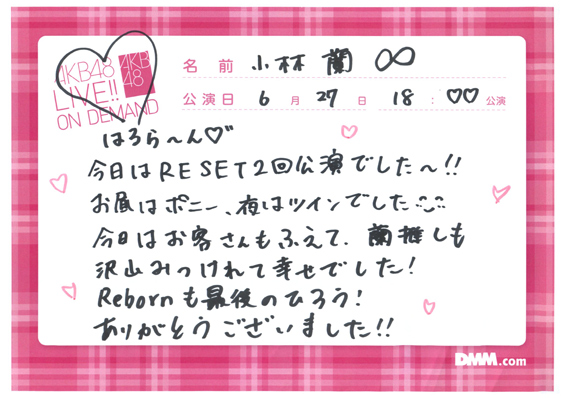 AKB48
LIVE!!
ON DEMAND
AKB
48
名前 小林蘭 ∞
公演日 6月27日 18:♡♡公演
はろら〜ん♡"
今日はRESET2回公演でした〜!!
お昼はポニー、夜はツインでした
今日はお客さんもふえて、蘭推しも
沢山みつけれて幸せでした!
Rebornも最後のひろう!
ありがとうございました!!
DMM.com